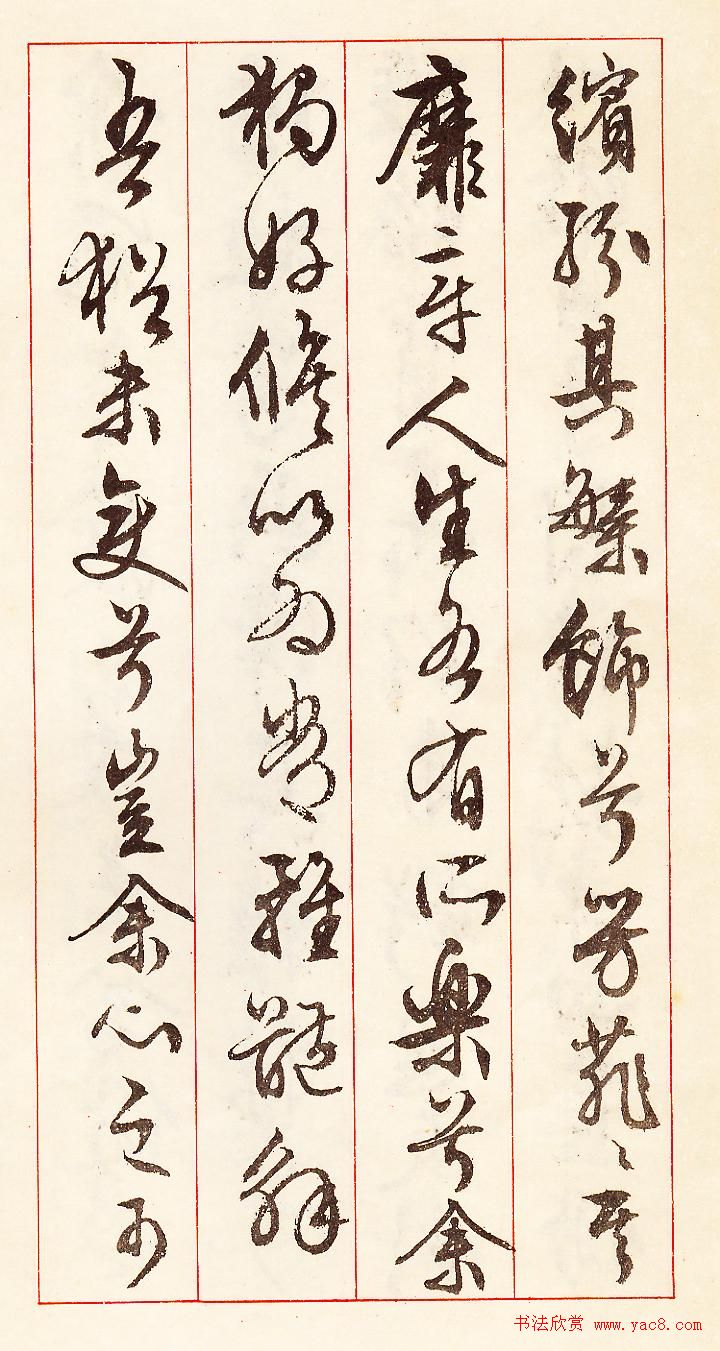 繽紛其繁飾兮芳菲〻其
靡章人生各有所樂兮余
獨好脩以為常雖體解
吾猶未變兮豈余心之可
书法欣赏 www.yac8.com